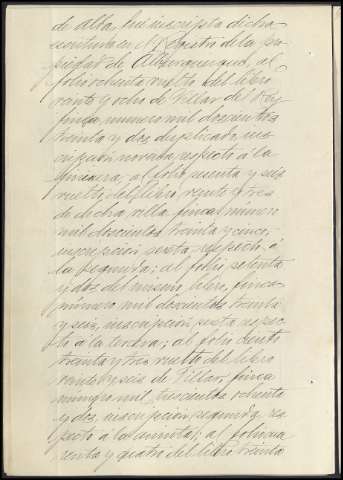 de alta, fué inscripta dicha
escritura en el Registro de la pro-
piedad de Alburquerque, al
folio ochenta vuelto del libro
veinte y ocho de Villar del Rey
finca número mil doscientos
treinta y dos duplicado, ins-
cripción novena, respecto á la
primera; al folio y seis
vuelto del libro veinte y tres
de dicha villa, finca número
mil doscientos treinta y cinco,
inscripción sexta, respecto á
la segunda; al folio setenta
y dos del mismo libro, finca
número mil doscientos treinta
y seis, inscripción sexta respec-
to á la tercera; al folio ciento
treinta y tres vuelto del libro
veinte y seis de Villar, finca
número mil trescientos ochenta
y dos, inscripción segunda, res-
pecto á la cuarta; al folio cua-
renta y cuatro del libro treinta